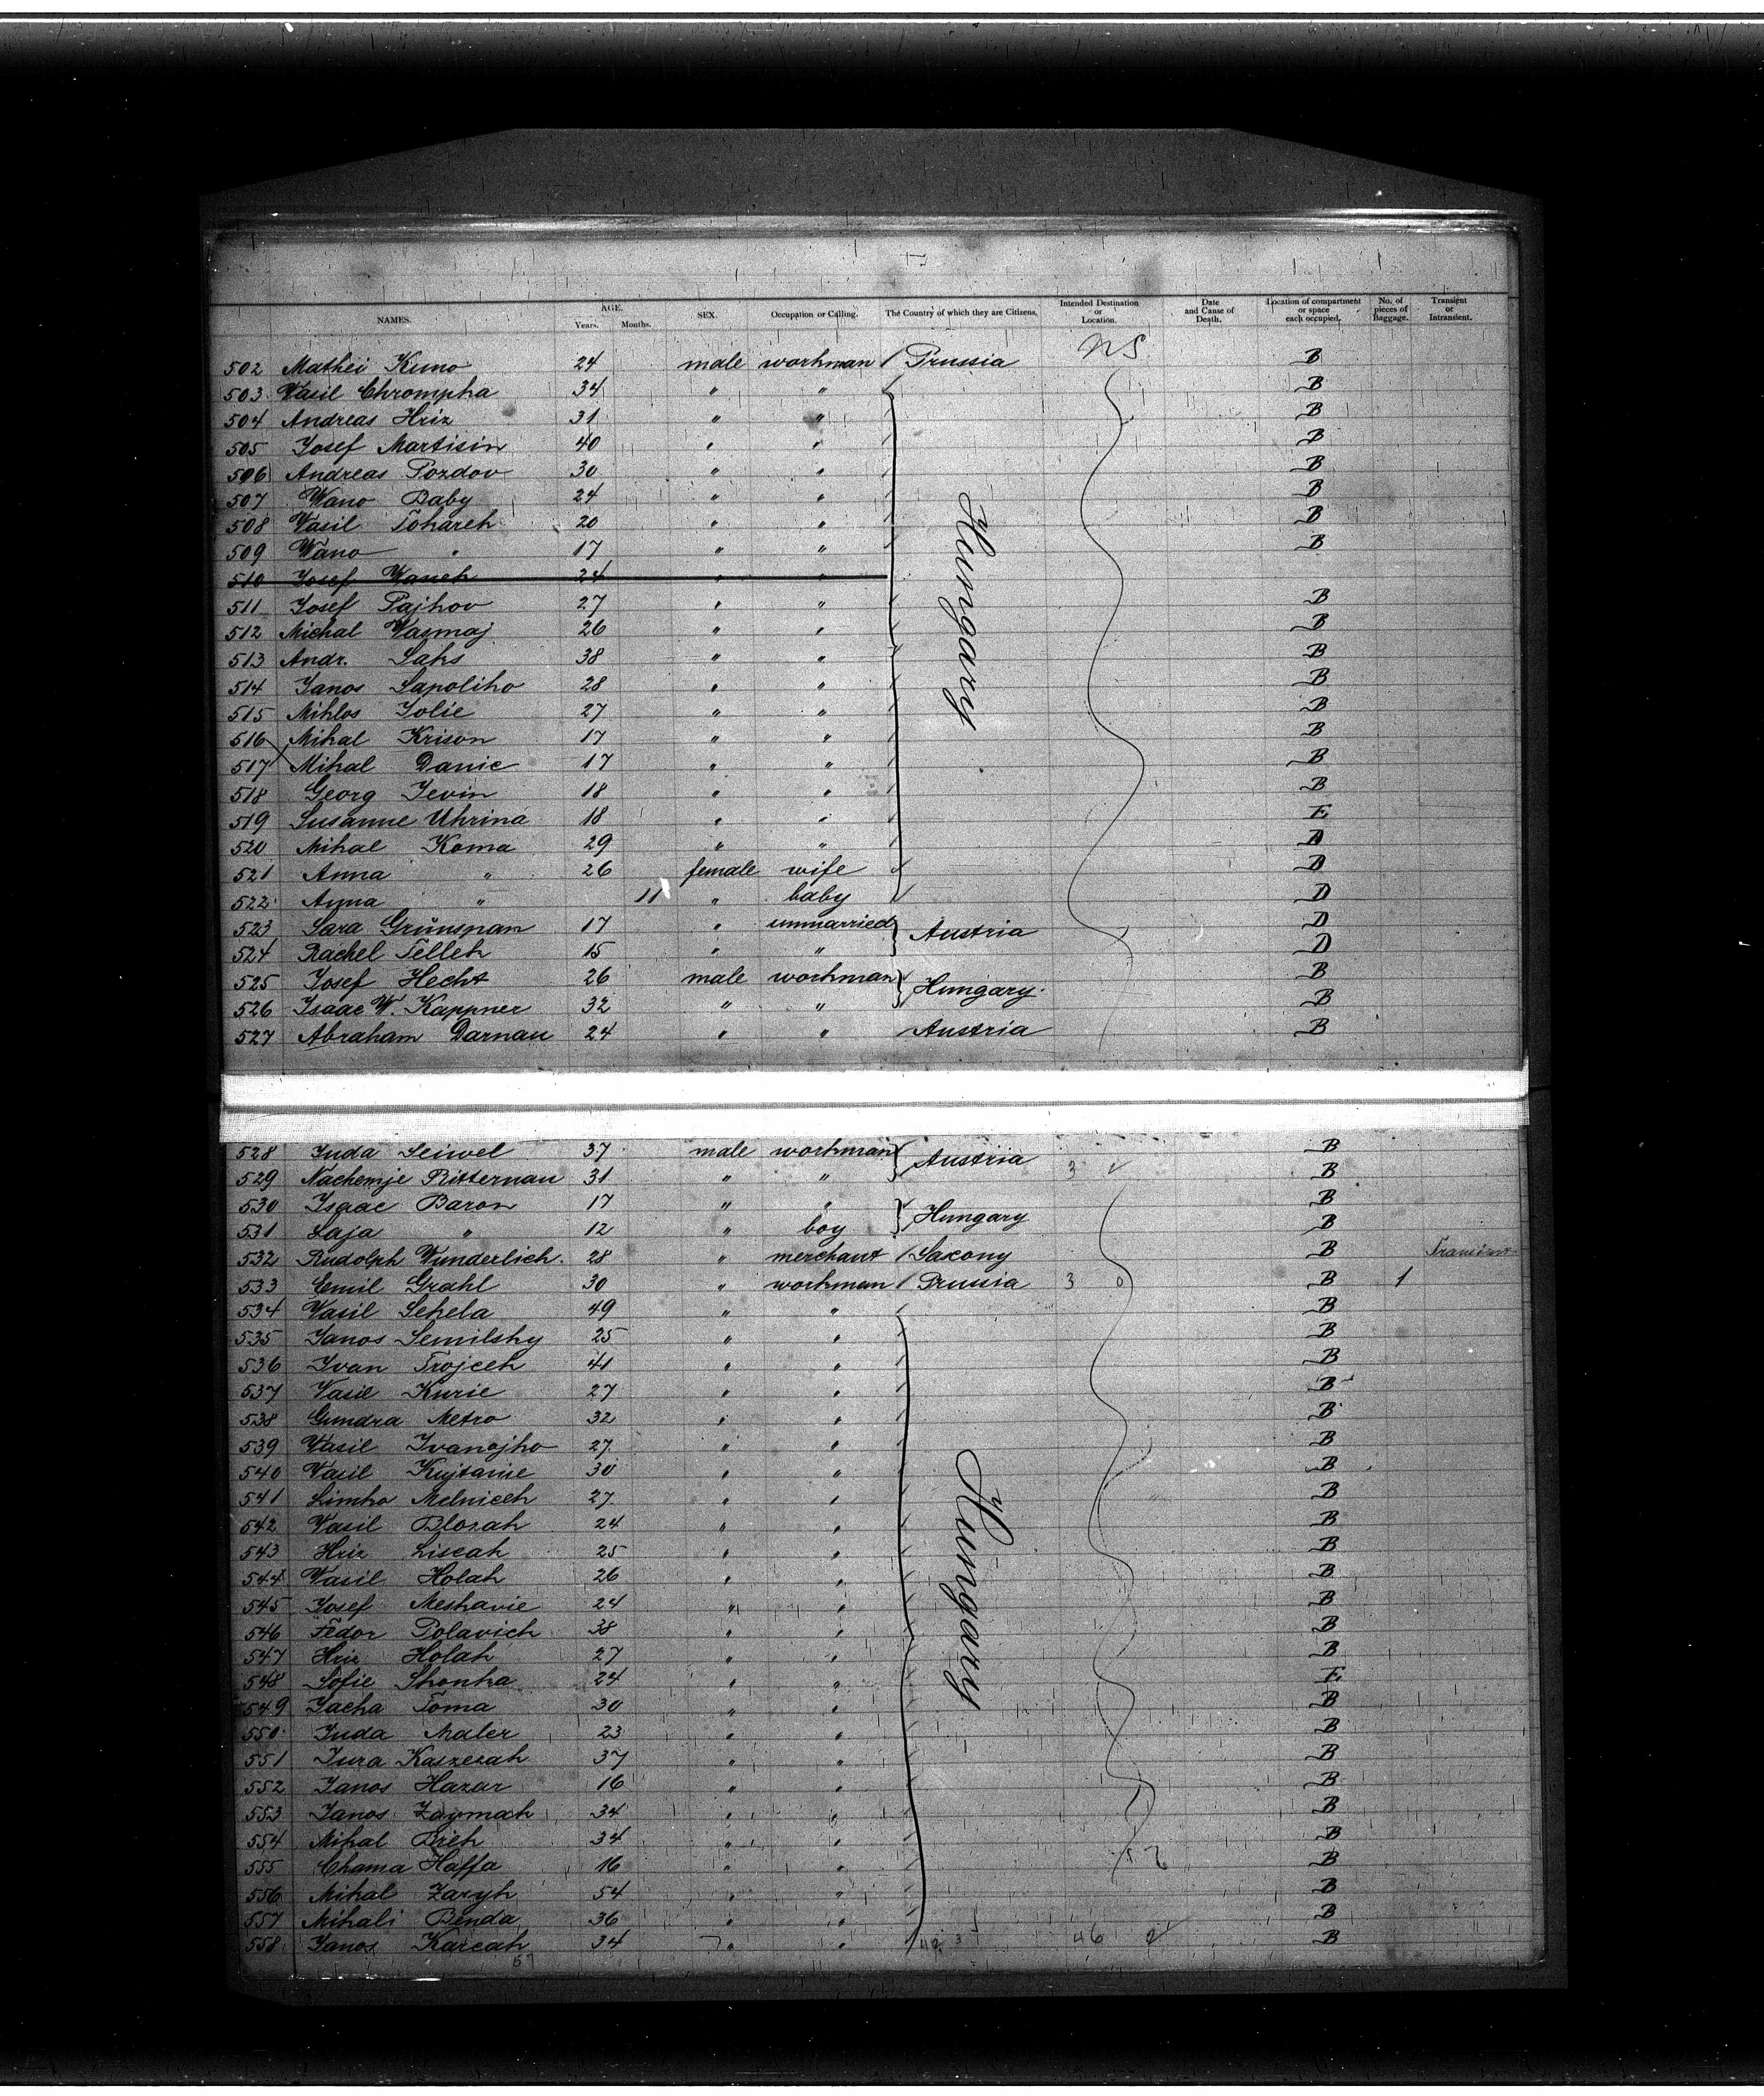 NAMES. AGE. Years. Months. SEX. Occupation or Calling. The Country of which they are Citizens. Intended Destination or Location. Date and Cause of Death. Location of compartment or space each occupied. No. of pieces of Baggage. Transient or Intransient.
502 Mathei Kuno 24 male workman / Prussia B
503 Vasil Chrompka 34 " " B
504 Andreas Hriz 31 " " B
505 Josef Martisin 40 " " B
506 Andreas Pozdov 30 " " B
507 Wano Baby 24 " " B
508 Vasil Tokarek 20 " " B
509 Wano " 17 " " B
510 Josef Wanek 24 " "
511 Josef Pajkov 27 " " B
512 Michal Vasmaj 26 " " B
513 Andr. Saks 38 " " B
514 Janos Sapoliko 28 " " B
515 Miklos Jolie 27 " " B
516 Mihal Krison 17 " " B
517 Mihal Danic 17 " " B
518 Georg Jevin 18 " " B
519 Susanne Uhrina 18 " " E
520 Mihal Koma 29 " " D
521 Anna " 26 female wife D
522 Anna " 11 " baby D
Hungary
523 Sara Grünspan 17 " unmarried Austria D
524 Rachel Tellek 15 " " D
525 Josef Hecht 26 male workman Hungary B
526 Isaac W. Kappner 32 " " B
527 Abraham Darnau 24 " " Austria B
528 Juda Seiwel 37 male workman Austria B
529 Nachemje Ritternau 31 " " 3 B
530 Isaac Baron 17 " " Hungary B
531 Laja " 12 " boy B
532 Rudolph Wunderlich 28 " merchant / Saxony B Transient
533 Emil Grahl 30 " workman / Prussia 3 0 B 1
534 Vasil Sekela 49 " " B
535 Janos Semilsky 25 " " B
536 Ivan Trojcek 41 " " B
537 Vasil Kurie 27 " " B
538 Gundra Metro 32 " " B
539 Vasil Ivanojko 27 " " B
540 Vasil 30 " " B
541 Simko Melnicek 27 " " B
542 Vasil Blosak 24 " " B
543 Hriz Liscak 25 " " B
544 Vasil Holak 26 " " B
545 Josef Meskavie 24 " " B
546 Fedor Polavich 38 " " B
547 Hriz Holak 27 " " B
548 Sofie Skonka 24 " " E
549 Jacka Toma 30 " " B
550 Juda Maler 23 " " B
551 Jura 37 " " B
552 Janos Hazar 16 " " B
553 Janos Zaymack 34 " " B
554 Mihal Brek 34 " " B
555 Chama Haffa 16 " " B
556 Mihal Zaryk 54 " " B
557 Mihali Benda 36 " " B
558 Janos Karcak 34 " " 46 B
Hungary